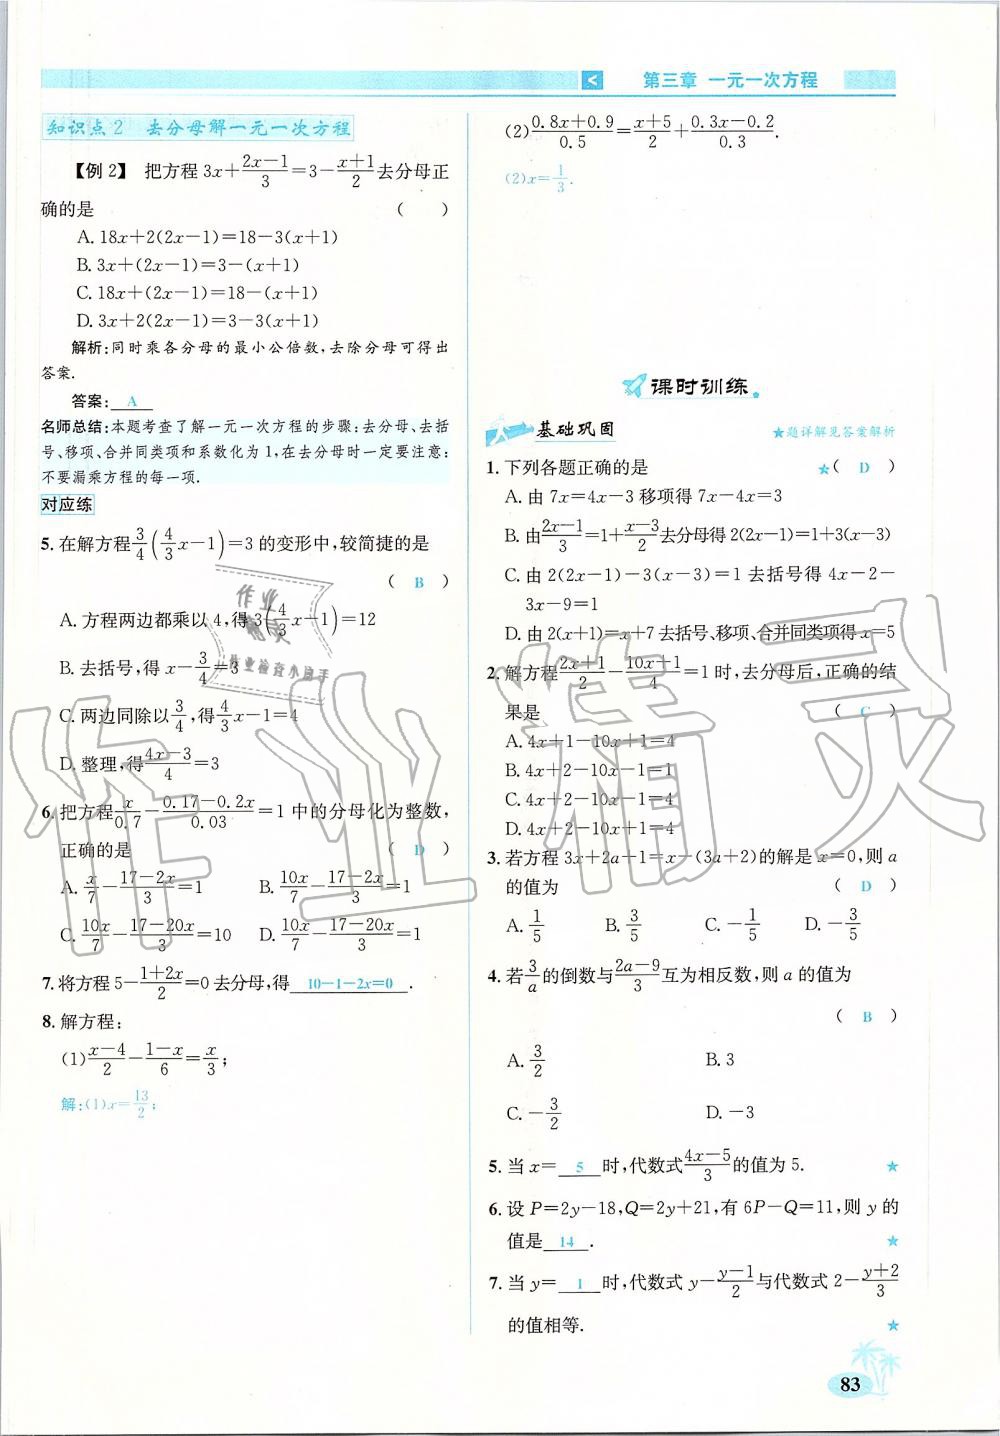 第三章 一元一次方程
知识点2 去分母解一元一次方程
【例2】 把方程3x+(2x-1)/3=3-(x+1)/2去分母正
确的是 ( )
A. 18x+2(2x-1)=18-3(x+1)
B. 3x+(2x-1)=3-(x+1)
C. 18x+(2x-1)=18-(x+1)
D. 3x+2(2x-1)=3-3(x+1)
解析:同时乘各分母的最小公倍数,去除分母可得出
答案.
答案: A
名师总结:本题考查了解一元一次方程的步骤:去分母、去括
号、移项、合并同类项和系数化为1,在去分母时一定要注意:
不要漏乘方程的每一项.
对应练
5. 在解方程3/4(4/3x-1)=3的变形中,较简捷的是
( B )
A. 方程两边都乘以4,得3(4/3x-1)=12
B. 去括号,得x-3/4=3
C. 两边同除以3/4,得4/3x-1=4
D. 整理,得(4x-3)/4=3
6. 把方程x/0.7-(0.17-0.2x)/0.03=1中的分母化为整数,
正确的是 ( D )
A. x/7-(17-2x)/3=1 B. 10x/7-(17-2x)/3=1
C. 10x/7-(17-20x)/3=10 D. 10x/7-(17-20x)/3=1
7. 将方程5-(1+2x)/2=0去分母,得 10-1-2x=0 .
8. 解方程:
(1)(x-4)/2-(1-x)/6=x/3;
解:(1)x=13/2;
(2)(0.8x+0.9)/0.5=(x+5)/2+(0.3x-0.2)/0.3.
(2)x=1/3.
课时训练
基础巩固 ★题详解见答案解析
1. 下列各题正确的是 ★( D )
A. 由7x=4x-3移项得7x-4x=3
B. 由(2x-1)/3=1+(x-3)/2去分母得2(2x-1)=1+3(x-3)
C. 由2(2x-1)-3(x-3)=1去括号得4x-2-
3x-9=1
D. 由2(x+1)=x+7去括号、移项、合并同类项得x=5
2. 解方程(2x+1)/2-(10x+1)/4=1时,去分母后,正确的结
果是 ( C )
A. 4x+1-10x+1=4
B. 4x+2-10x-1=1
C. 4x+2-10x-1=4
D. 4x+2-10x+1=4
3. 若方程3x+2a+1=x-(3a+2)的解是x=0,则a
的值为 ( D )
A. 1/5 B. 3/5 C. -1/5 D. -3/5
4. 若3/a的倒数与(2a-9)/3互为相反数,则a的值为
( B )
A. 3/2 B. 3
C. -3/2 D. -3
5. 当x= 5 时,代数式(4x-5)/3的值为5. ★
6. 设P=2y-18,Q=2y+21,有6P-Q=11,则y的
值是 14 . ★
7. 当y= 1 时,代数式y-(y-1)/2与代数式2-(y+2)/3
的值相等. ★
83
作业
精灵
作业检查小助手
作业精灵